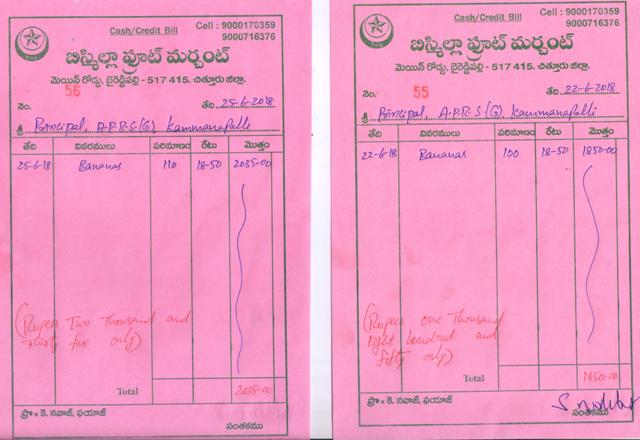 Cash/Credit Bill
Cell : 9000170359
9000716376
బిస్మిల్లా ఫ్రూట్ మర్చంట్
మెయిన్ రోడ్డు, బైరెడ్డిపల్లి - 517 415. చిత్తూరు జిల్లా.
నెం. 56 తేది 25-6-2018
శ్రీ Principal, A.P.R.S(G), Kammanapalli
తేది వివరములు పరిమాణం రేటు మొత్తం
25-6-18 Bananas 110 18-50 2035-00
(Rupees Two Thousand and
thirty five only)
Total 2035-00
ప్రొ॥ కె. నవాజ్, ఫయాజ్
సంతకము
Cash/Credit Bill
Cell : 9000170359
9000716376
బిస్మిల్లా ఫ్రూట్ మర్చంట్
మెయిన్ రోడ్డు, బైరెడ్డిపల్లి - 517 415. చిత్తూరు జిల్లా.
నెం. 55 తేది 22-6-2018
శ్రీ Principal, A.P.R.S(G), Kammanapalli
తేది వివరములు పరిమాణం రేటు మొత్తం
22-6-18 Bananas 100 18-50 1850-00
(Rupees one Thousand
Eight hundred and
fifty only)
Total 1850-00
ప్రొ॥ కె. నవాజ్, ఫయాజ్
సంతకము